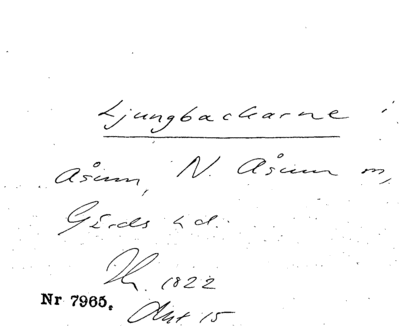 Ljungbackarne i
Åsum, N. Åsum sn,
Gärds hd.
1822
Nr 7965. Akt. 15